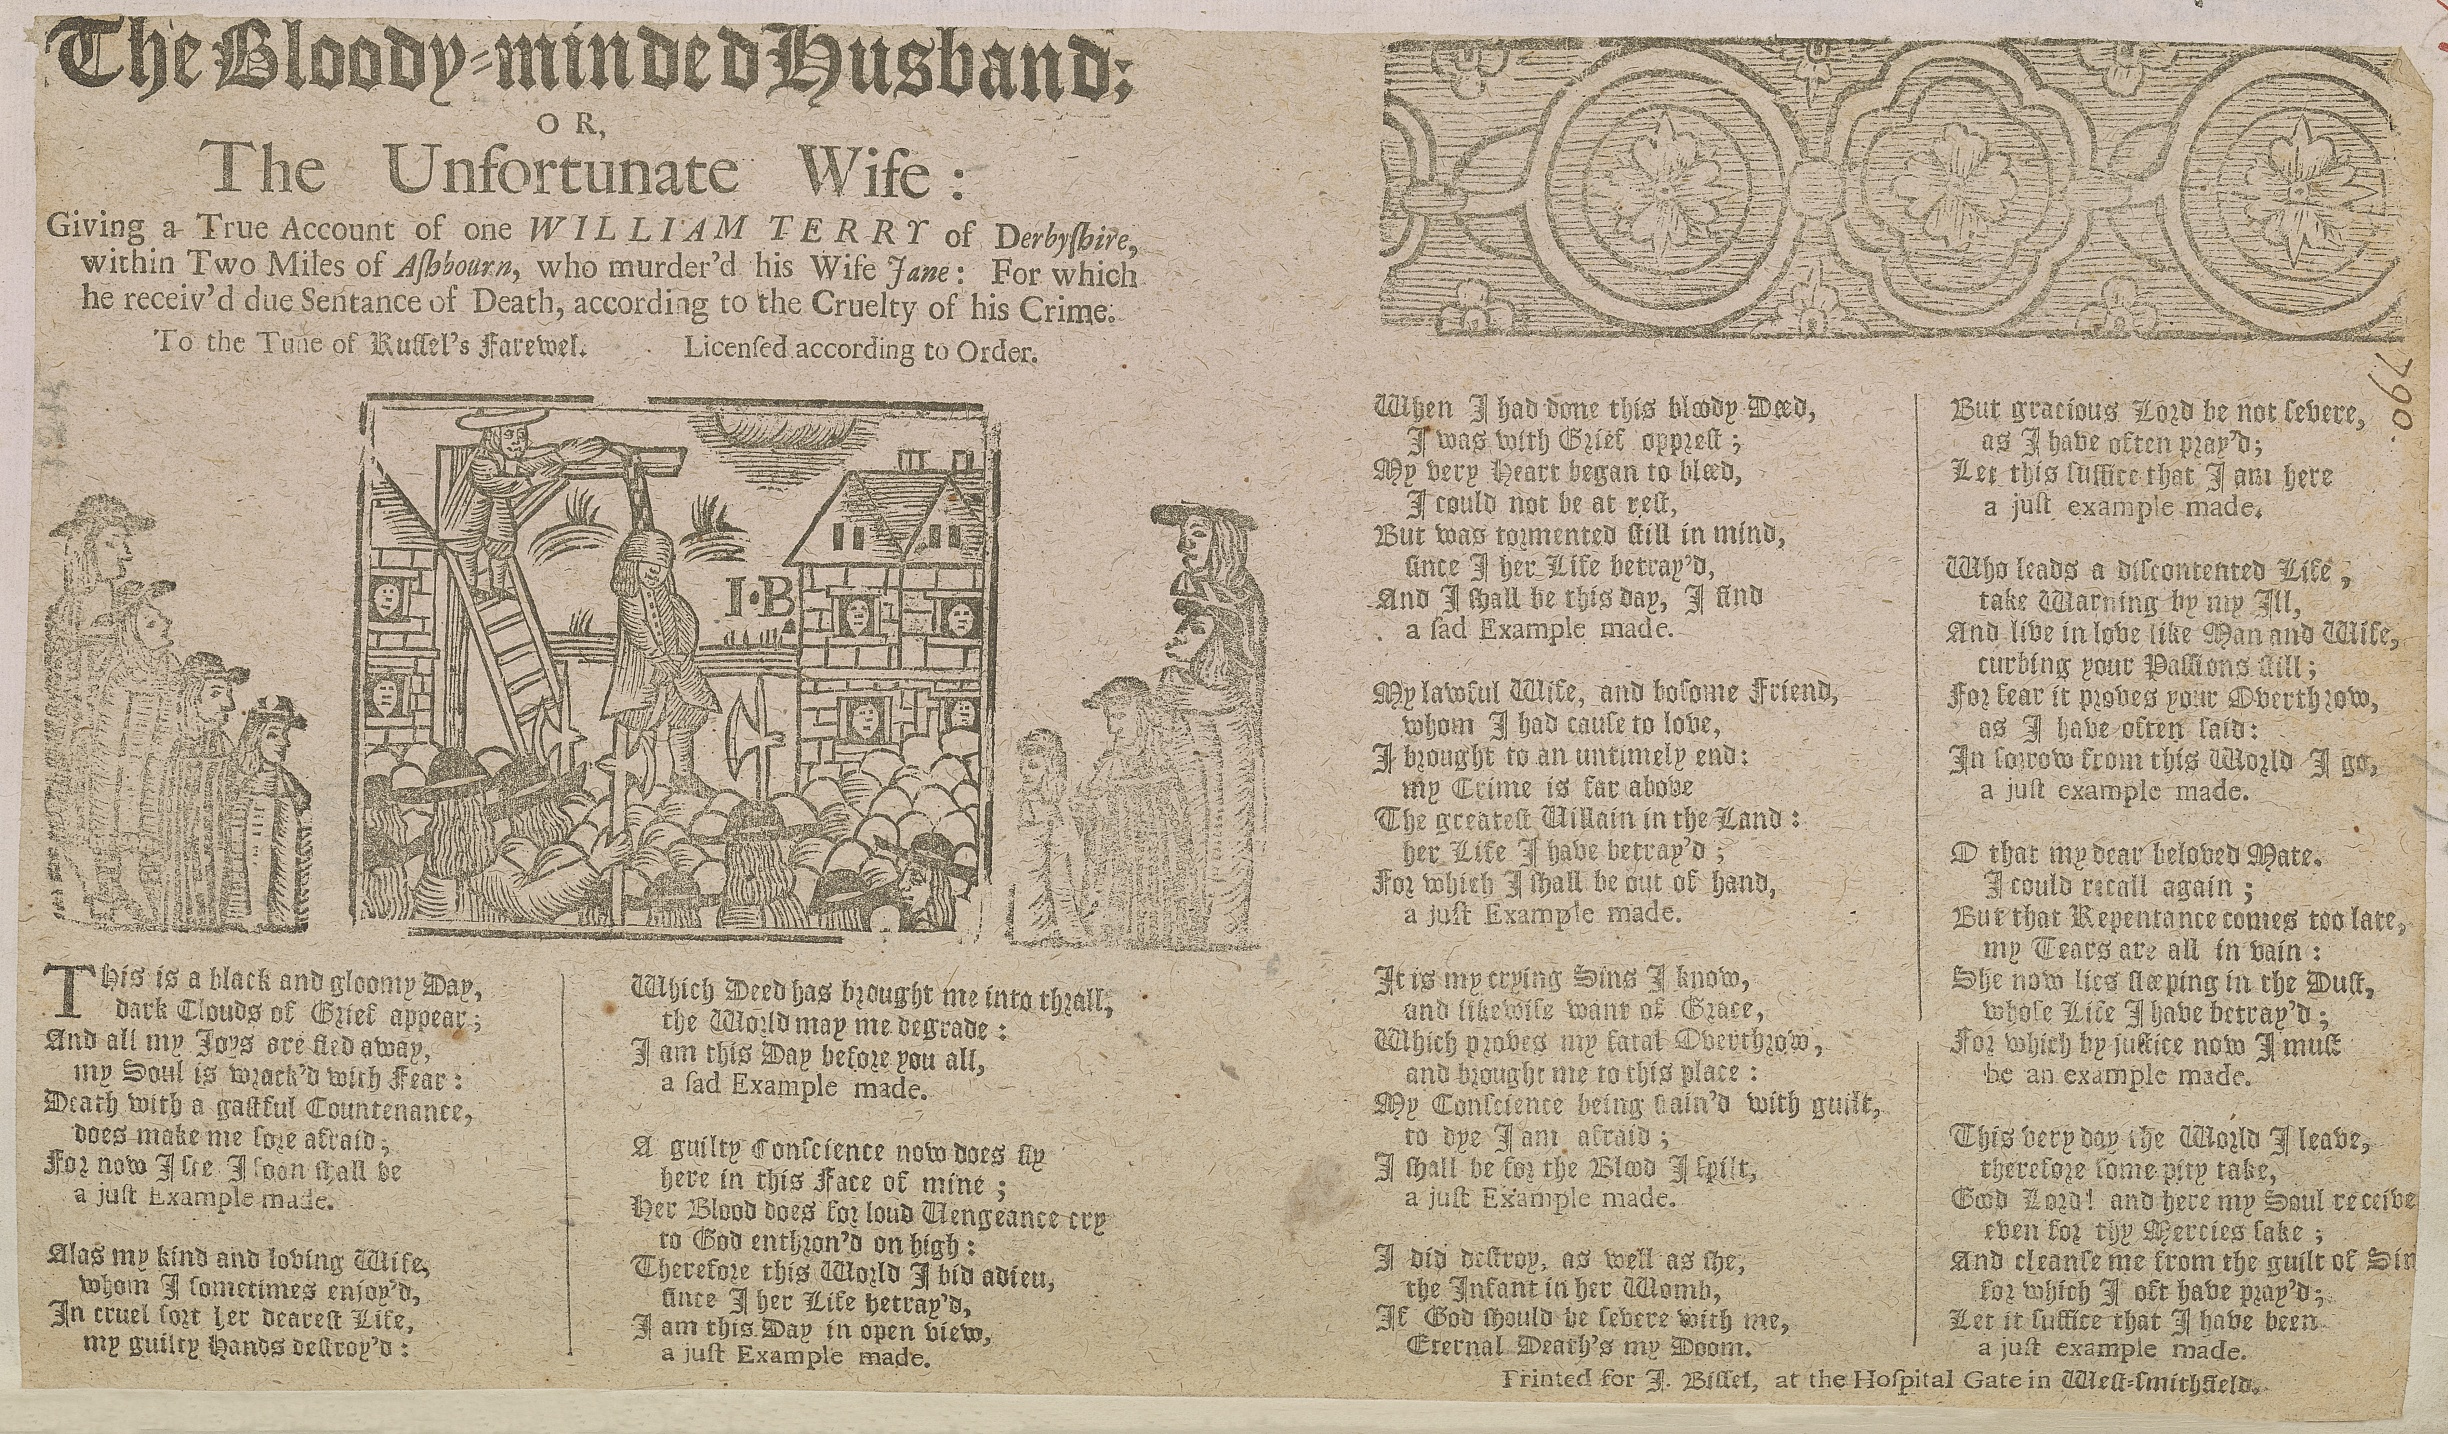 The Bloody-minded Husband;
OR,
The Unfortunate Wife:
Giving a True Account of one WILLIAM TERRY of Derbyſhire,
within Two Miles of Aſhbourn, who murder'd his Wife Jane: For which
he receiv'd due Sentance of Death, according to the Cruelty of his Crime.
To the Tune of Ruſſel's Farewel. Licenſed according to Order.
I·B
THis is a black and gloomy Day,
dark Clouds of Grief appear;
And all my Joys are fled away,
my Soul is wrack'd with Fear:
Death with a gaſtful Countenance,
does make me ſore afraid;
For now I ſee I ſoon ſhall be
a juſt Example made.
Alas my kind and loving Wife,
whom I ſometimes enjoy'd,
In cruel ſort her deareſt Life,
my guilty Hands deſtroy'd:
Which Deed has brought me into thrall,
the World may me degrade:
I am this Day before you all,
a ſad Example made.
A guilty Conſcience now does fly
here in this Face of mine;
Her Blood does for loud Vengeance cry
to God enthron'd on high:
Therefore this World I bid adieu,
ſince I her Life betray'd,
I am this Day in open view,
a juſt Example made.
When I had done this bloody Deed,
I was with Grief oppreſt;
My very Heart began to bleed,
I could not be at reſt,
But was tormented ſtill in mind,
ſince I her Life betray'd,
And I ſhall be this day, I find
a ſad Example made.
My lawful Wife, and boſome Friend,
whom I had cauſe to love,
I brought to an untimely end:
my Crime is far above
The greateſt Villain in the Land:
her Life I have betray'd;
For which I ſhall be out of hand,
a juſt Example made.
It is my crying Sins I know,
and likewiſe want of Grace,
Which proves my fatal Overthrow,
and brought me to this place:
My Conſcience being ſtain'd with guilt,
to dye I am afraid;
I ſhall be for the Blood I ſpilt,
a juſt Example made.
I did deſtroy, as well as ſhe,
the Infant in her Womb,
If God ſhould be ſevere with me,
Eternal Death's my Doom.
But gracious Lord be not ſevere,
as I have often pray'd;
Let this ſuffice that I am here
a juſt example made.
Who leads a diſcontented Life,
take Warning by my Ill,
And live in love like Man and Wife,
curbing your Paſſions ſtill;
For fear it proves your Overthrow,
as I have often ſaid:
In ſorrow from this World I go,
a juſt example made.
O that my dear beloved Mate.
I could recall again;
But that Repentance comes too late,
my Tears are all in vain:
She now lies ſleeping in the Duſt,
whoſe Life I have betray'd;
For which by juſtice now I muſt
be an example made.
This very day the World I leave,
therefore ſome pity take,
Good Lord! and here my Soul receive
even for thy Mercies ſake;
And cleanſe me from the guilt of Sin
for which I oft have pray'd;
Let it ſuffice that I have been
a juſt example made.
Printed for J. Biſſel, at the Hoſpital Gate in Weſt-ſmithfield.
790.